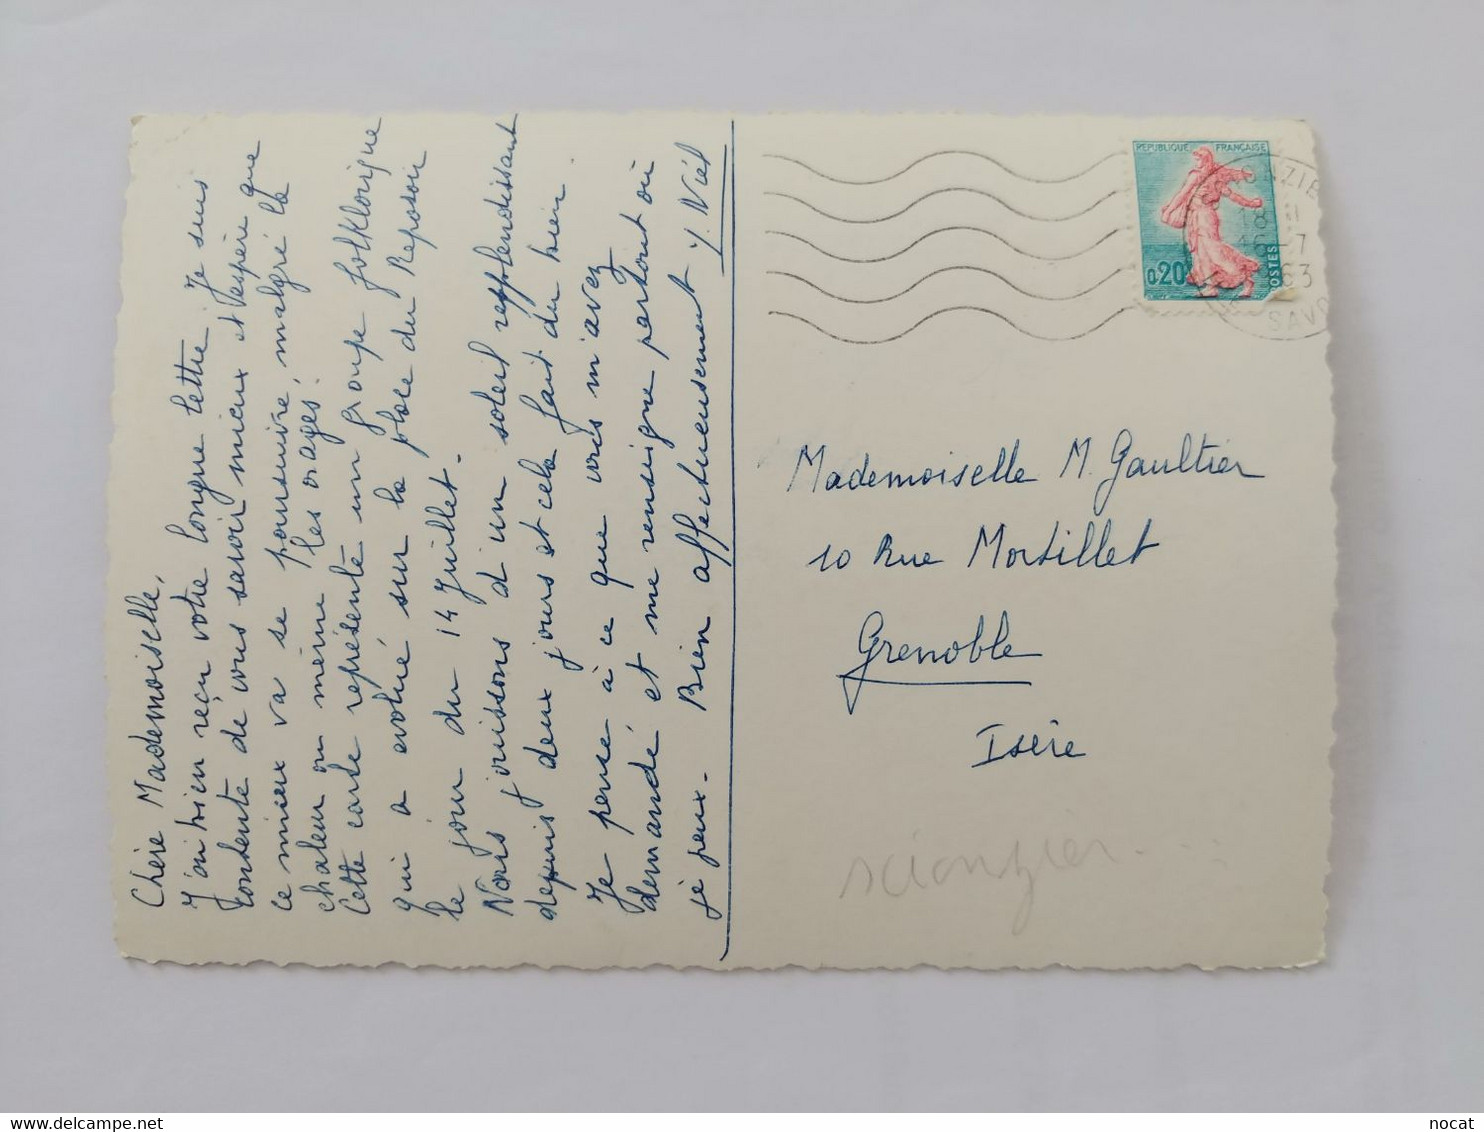 Chère Mademoiselle,
J'ai bien reçu votre longue lettre. Je suis
contente de vous savoir mieux et j'espère que
ce mieux va se poursuivre, malgré la
chaleur ou même les orages.
Cette carte représente un groupe folklorique
qui a evolué sur la place du Reposoir
le jour du 14 Juillet.
Nous jouissons d'un soleil resplendissant
depuis deux jours et cela fait du bien.
Je pense à ce que vous m'avez
demandé et me renseigne partout où
je peux. Bien affectueusement
Y. Niél
REPUBLIQUE FRANÇAISE
0,20
POSTES
ONZIE
18 H
-7
63
SAVO
Mademoiselle M. Gaultier
10 Rue Mortillet
Grenoble
Isère
scionzier....
nocat